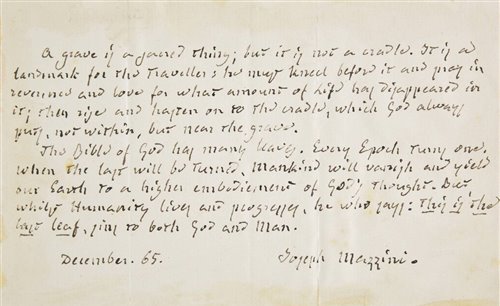 A grave is a sacred thing; but it is not a cradle. It is a
landmark for the Traveller: he must kneel before it and pray in
reverence and love for what amount of Life has disappeared in
it; then rise and hasten on to the cradle, which God always
puts, not within, but near the grave.
The Bible of God has many leaves. Every Epoch turns one.
when the last will be turned, Mankind will vanish and yield
our Earth to a higher embodiement of God's thought. But
whilst Humanity lives and progresses, he who says: this is the
last leaf, sins to both God and Man.
December. 65. Joseph Mazzini.